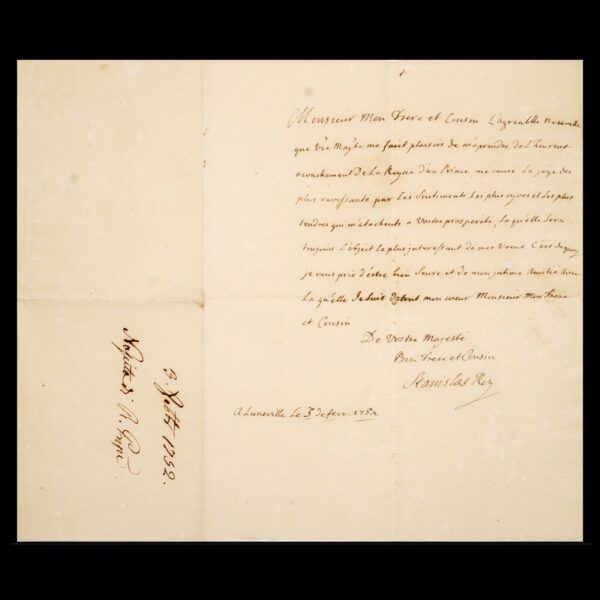 Monsieur Mon Frere et Cousin L'agreable Nouvelle
que Vre Majte me fait plaisir de m'aprendre de L'heureux
acouchement De La Reyne d'un Prince me cause La joye des
plus ravissante par Les Sentiments Les plus vives et Les plus
tendres qui m'atachents a Vostre prosperité, La qu'elle sera
toujours L'objet Le plus interessant de mes Voeux C'est de quoy
je vous prie d'estre bien Seure et de mon intime Amitié avec
La qu'elle je suis de tout mon coeur Monsieur Mon Frere
et Cousin
De Vostre Majesté
Bon Frere et Cousin
Stanislas Roy
A Luneville Le 3 de fevr. 1752
3 1752.
Nascita di R.